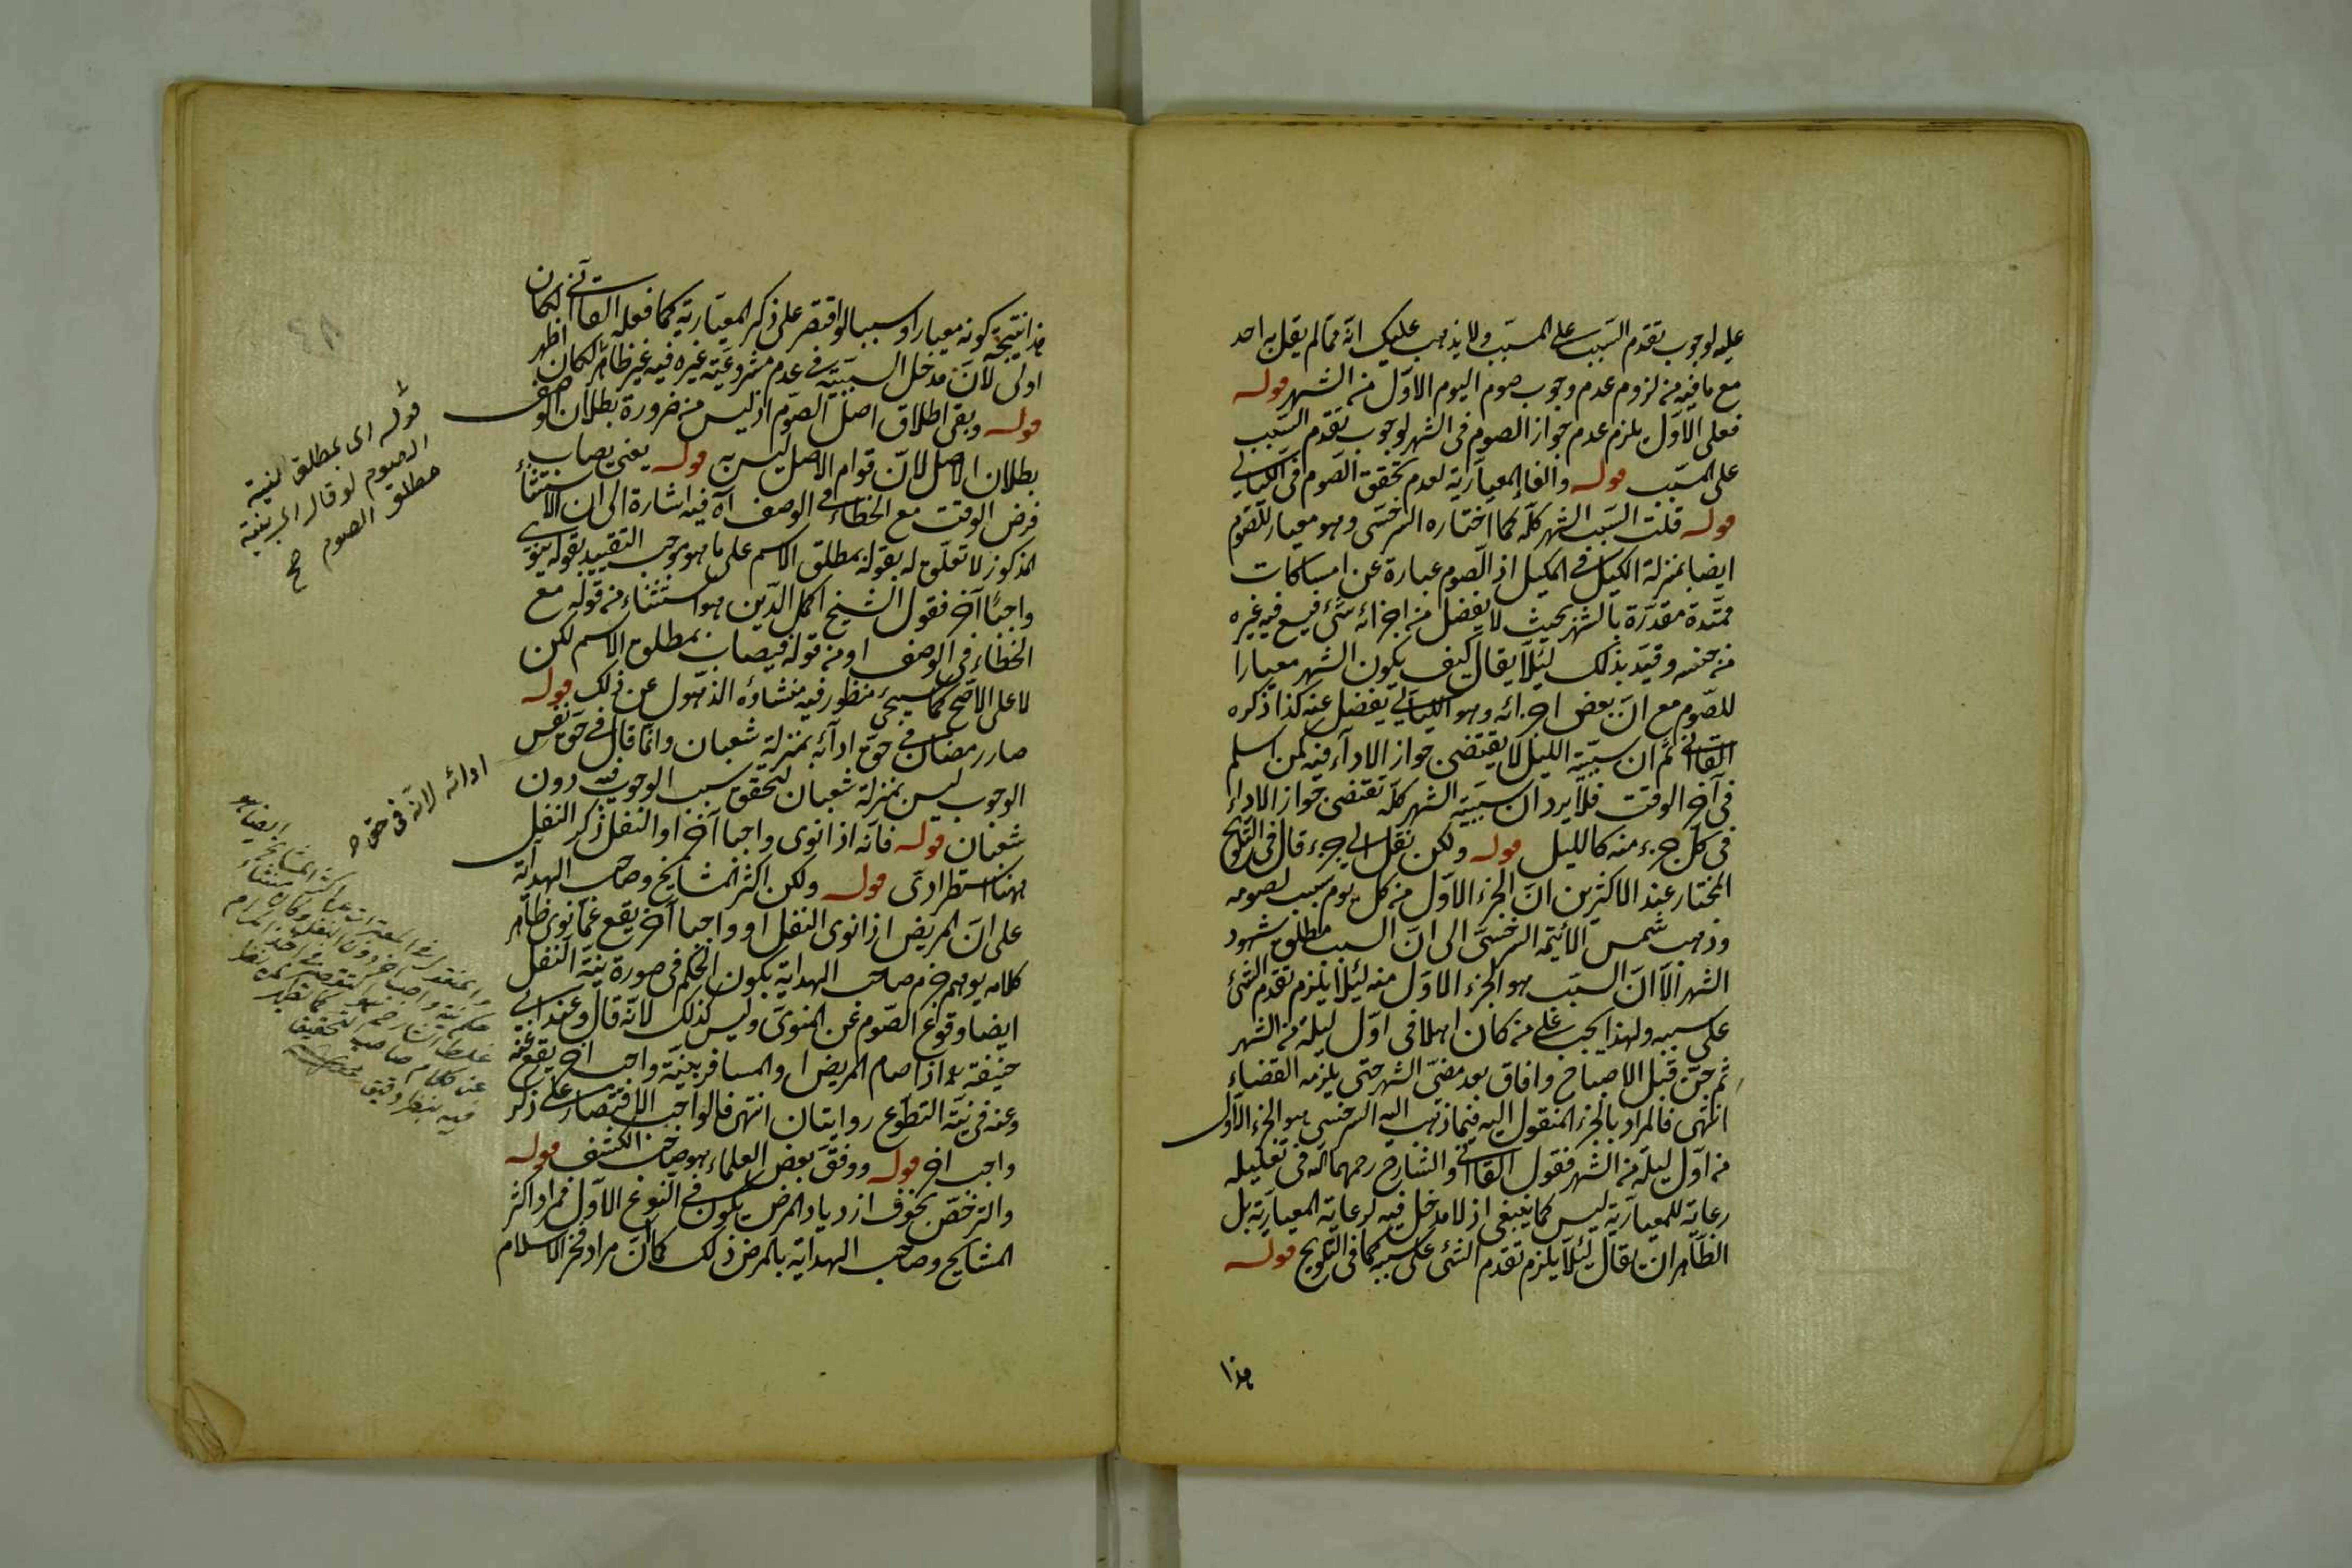 عليه لوجوب تقدم السبب على المسبب ولا يذهب عليك انه مما لم يقل به احد
مع ما فيه من لزوم عدم وجوب صوم اليوم الاول من الشهر قوله
فعلى الاول يلزم عدم جواز الصوم فى الشهر لوجوب تقدم السبب
على المسبب قوله والغاء المعيارية لعدم تحقق الصوم فى الليالى
قوله قلت السبب الشهر كله كما اختاره السرخسى وهو معيار للصوم
ايضا بمنزلة الكيل فى المكيل اذ الصوم عبارة عن امساكات
ممتدة مقدرة بالشهر بحيث لا يفضل من اجزائه شئ فيسع فيه غيره
من جنسه وقيد بذلك لئلا يقال كيف يكون الشهر معيارا
للصوم مع ان بعض اجزائه وهو الليالى يفضل عنه كذا ذكره
القاآنى ثم ان سببية الليل لا يقتضى جواز الاداء فيه كمن اسلم
فى آخر الوقت فلا يرد ان سببية الشهر كله تقتضى جواز الاداء
فى كل جزء منه كالليل قوله ولكن نقل الى جزء قال فى التلويح
المختار عند الاكثرين ان الجزء الاول من كل يوم سبب لصومه
وذهب شمس الائمة السرخسى الى ان السبب مطلق شهود
الشهر الا ان السبب هو الجزء الاول منه لئلا يلزم تقدم الشئ
على سببه ولهذا يجب على من كان اهلا فى اول ليلة من الشهر
ثم جن قبل الاصباح وافاق بعد مضى الشهر حتى يلزمه القضاء
انتهى فالمراد بالجزء المنقول اليه فيما ذهب اليه السرخسى هو الجزء الاول
من اول ليلة من الشهر فقول القاآنى والشارح رحمهما الله فى تعليله
رعاية للمعيارية ليس كما ينبغى اذ لا مدخل فيه لرعاية المعيارية بل
الظاهر ان يقال لئلا يلزم تقدم الشئ على سببه كما فى التلويح قوله
هذا
هذا نتيجة كونه معيارا وسببا لو اقتصر على ذكر المعيارية كما فعله القاآنى لكان
اولى لان مدخل السببية فى عدم مشروعية غيره فيه غير ظاهر لكان اظهر
قوله وبقى اطلاق اصل الصوم اذ ليس من ضرورة بطلان الوصف
بطلان الاصل لان قوام الاصل ليس به قوله يعنى يصاب
فرض الوقت مع الخطاء فى الوصف آه فيه اشارة الى ان الاستثناء
المذكور لا تعلق له بقوله بمطلق الاسم على ما هو موجب التقييد بقوله ينوى
واجبا آخر فقول الشيخ اكمل الدين هو استثناء من قوله مع
الخطاء فى الوصف او من قوله فيصاب بمطلق الاسم لكن
لا على الاصح كما سيجئ منظور فيه منشاؤه الذهول عن ذلك قوله
صار رمضان فى حق ادائه بمنزلة شعبان وانما قال فى حق نفس
الوجوب ليس بمنزلة شعبان لتحقق سبب الوجوب فيه دون
شعبان قوله فانه اذا نوى واجبا آخر او النفل ذكر النفل
ههنا استطرادى قوله ولكن اكثر المشايخ وصاحب الهداية
على ان المريض اذا نوى النفل او واجبا آخر يقع عما نوى ظاهر
كلامه يوهم جزم صاحب الهداية بكون الحكم فى صورة نية النفل
ايضا وقوع الصوم عن المنوى وليس كذلك لانه قال وعند ابى
حنيفة رح اذا صام المريض او المسافر بنية واجب آخر يقع عنه
وعنه فى نية التطوع روايتان انتهى فالواجب الاقتصار على ذكر
واجب آخر قوله ووفق بعض العلماء هو صاحب الكشف قوله
والترخص بخوف ازدياد المرض يكون فى النوع الاول فمراد اكثر
المشايخ وصاحب الهداية بالمرض ذلك كان مراد فخر الاسلام
قوله اى بمطلق نية
الصوم لو قال اى بنية
مطلق الصوم صح
ادائه لانه فى حق صح